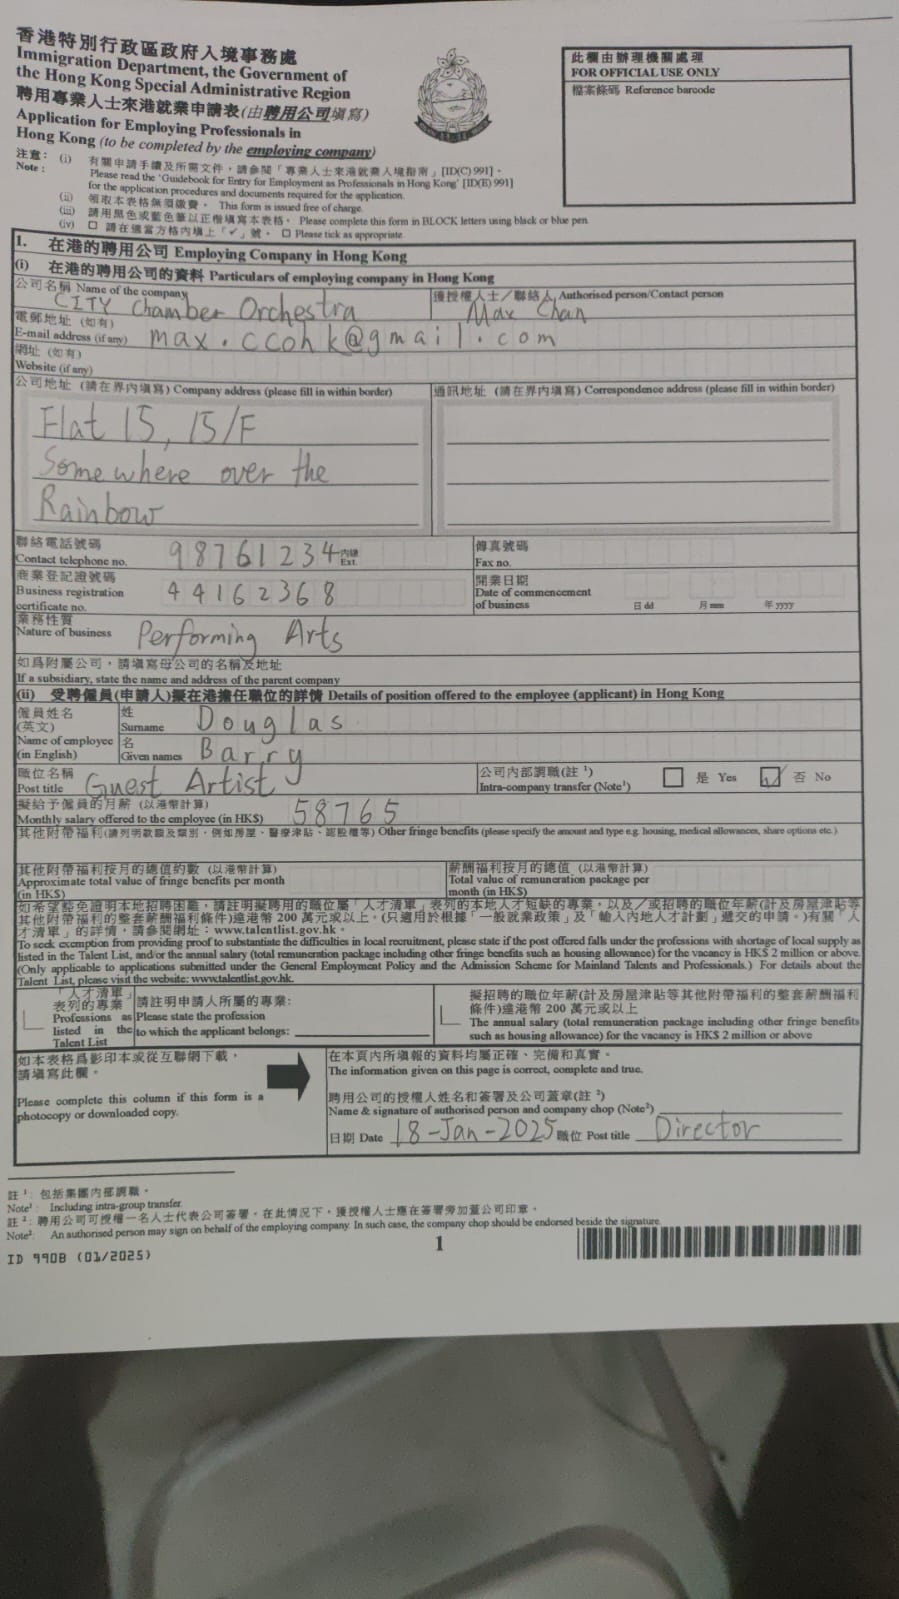 香港特別行政區政府入境事務處
Immigration Department, the Government of
the Hong Kong Special Administrative Region
聘用專業人士來港就業申請表(由聘用公司填寫)
Application for Employing Professionals in
Hong Kong (to be completed by the employing company)
此欄由辦理機關處理
FOR OFFICIAL USE ONLY
檔案條碼 Reference barcode
注意: (i) 有關申請手續及所需文件,請參閱「專業人士來港就業入境指南」[ID(C) 991]。
Note : Please read the 'Guidebook for Entry for Employment as Professionals in Hong Kong' [ID(E) 991]
for the application procedures and documents required for the application.
(ii) 領取本表格無須繳費。 This form is issued free of charge.
(iii) 請用黑色或藍色筆以正楷填寫本表格。 Please complete this form in BLOCK letters using black or blue pen.
(iv) □ 請在適當方格內填上「✓」號。 □ Please tick as appropriate.
1. 在港的聘用公司 Employing Company in Hong Kong
(i) 在港的聘用公司的資料 Particulars of employing company in Hong Kong
公司名稱 Name of the company
CITY Chamber Orchestra
獲授權人士/聯絡人 Authorised person/Contact person
Max Chan
電郵地址 (如有)
E-mail address (if any) max.ccohk@gmail.com
網址 (如有)
Website (if any)
公司地址 (請在界內填寫) Company address (please fill in within border)
Flat 15, 15/F
Somewhere over the
Rainbow
通訊地址 (請在界內填寫) Correspondence address (please fill in within border)
聯絡電話號碼
Contact telephone no. 98761234 內線 Ext.
傳真號碼
Fax no.
商業登記證號碼
Business registration
certificate no. 44162368
開業日期
Date of commencement
of business 日 dd 月 mm 年 yyyy
業務性質
Nature of business Performing Arts
如為附屬公司,請填寫母公司的名稱及地址
If a subsidiary, state the name and address of the parent company
(ii) 受聘僱員(申請人)擬在港擔任職位的詳情 Details of position offered to the employee (applicant) in Hong Kong
僱員姓名
(英文)
Name of employee
(in English)
姓
Surname Douglas
名
Given names Barry
職位名稱
Post title Guest Artist
公司內部調職(註¹)
Intra-company transfer (Note¹)
是 Yes ✓ 否 No
擬給予僱員的月薪 (以港幣計算)
Monthly salary offered to the employee (in HK$) 58765
其他附帶福利(請列明款額及類別,例如房屋、醫療津貼、認股權等) Other fringe benefits (please specify the amount and type e.g. housing, medical allowances, share options etc.)
其他附帶福利按月的總值約數 (以港幣計算)
Approximate total value of fringe benefits per month
(in HK$)
薪酬福利按月的總值 (以港幣計算)
Total value of remuneration package per
month (in HK$)
如希望豁免證明本地招聘困難,請註明擬聘用的職位屬「人才清單」表列的本地人才短缺的專業,以及/或招聘的職位年薪(計及房屋津貼等
其他附帶福利的整套薪酬福利條件)達港幣 200 萬元或以上。(只適用於根據「一般就業政策」及「輸入內地人才計劃」遞交的申請。)有關「人
才清單」的詳情,請參閱網址:www.talentlist.gov.hk。
To seek exemption from providing proof to substantiate the difficulties in local recruitment, please state if the post offered falls under the professions with shortage of local supply as
listed in the Talent List, and/or the annual salary (total remuneration package including other fringe benefits such as housing allowance) for the vacancy is HK$ 2 million or above.
(Only applicable to applications submitted under the General Employment Policy and the Admission Scheme for Mainland Talents and Professionals.) For details about the
Talent List, please visit the website: www.talentlist.gov.hk.
「人才清單」
表列的專業
Professions as
listed in the
Talent List
請註明申請人所屬的專業:
Please state the profession
to which the applicant belongs:
擬招聘的職位年薪(計及房屋津貼等其他附帶福利的整套薪酬福利
條件)達港幣 200 萬元或以上
The annual salary (total remuneration package including other fringe benefits
such as housing allowance) for the vacancy is HK$ 2 million or above
如本表格為影印本或從互聯網下載,
請填寫此欄。
Please complete this column if this form is a
photocopy or downloaded copy.
在本頁內所填報的資料均屬正確、完備和真實。
The information given on this page is correct, complete and true.
聘用公司的授權人姓名和簽署及公司蓋章(註²)
Name & signature of authorised person and company chop (Note²)
日期 Date 18-Jan-2025 職位 Post title Director
註¹: 包括集團內部調職。
Note¹: Including intra-group transfer.
註²: 聘用公司可授權一名人士代表公司簽署。在此情況下,獲授權人士應在簽署旁加蓋公司印章。
Note²: An authorised person may sign on behalf of the employing company. In such case, the company chop should be endorsed beside the signature.
ID 990B (01/2025)
1